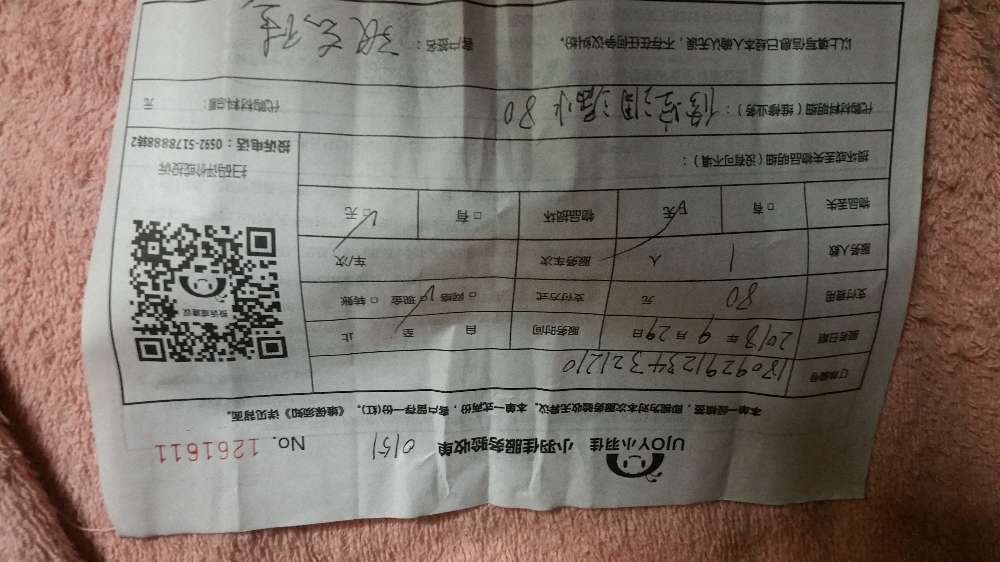 UJOY小羽佳 小羽佳服务验收单 0151 No. 1261611
本单一经填签，即视为对本次服务验收无异议。本单一式两份，客户留存一份(红)。《维保须知》详见背面。
订单编号 1809291234321210
服务日期 2018 年 9 月 29 日 服务时间 自 至 止
支付费用 80 元 支付方式 □ 网络 □ 现金 □ 转账
服务人数 1 人 服务车次 车/次
物品丢失 □ 有 □ 无 物品损坏 □ 有 □ 无
投诉或建议
扫码评价或投诉
投诉电话：0592-5178888转2
损坏或丢失物品明细（没有可不填）：
代购材料明细（维修业务）： 修空调漏水 80 代购材料总额： 元
以上填写信息已经本人确认无误，不存在任何争议纠纷。 客户签名：